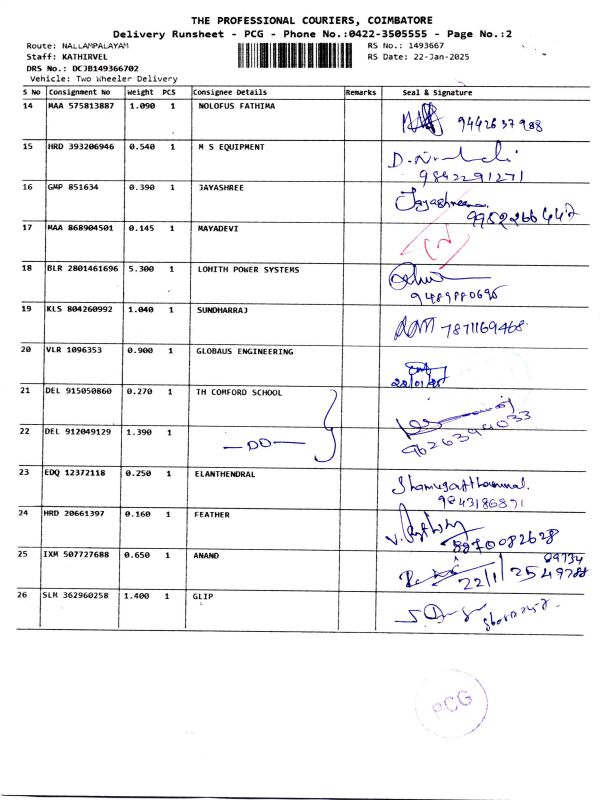 THE PROFESSIONAL COURIERS, COIMBATORE
Delivery Runsheet - PCG - Phone No.:0422-3505555 - Page No.:2
Route: NALLAMPALAYAM RS No.: 1493667
Staff: KATHIRVEL RS Date: 22-Jan-2025
DRS No.: DCJB149366702
Vehicle: Two Wheeler Delivery
S No Consignment No Weight PCS Consignee Details Remarks Seal & Signature
14 MAA 575813887 1.090 1 NOLOFUS FATHIMA
9442637988
15 HRD 393206946 0.540 1 M S EQUIPMENT
9842291271
16 GMP 851634 0.390 1 JAYASHREE
Jayashree
9952266447
17 MAA 868904501 0.145 1 MAYADEVI
18 BLR 2801461696 5.300 1 LOHITH POWER SYSTEMS
9489880695
19 KLS 804260992 1.040 1 SUNDHARRAJ
7871169468
20 VLR 1096353 0.900 1 GLOBAUS ENGINEERING
22/01/25
21 DEL 915050860 0.270 1 TH COMFORD SCHOOL
22 DEL 912049129 1.390 1 —DO—
9626394033
23 EDQ 12372118 0.250 1 ELANTHENDRAL
9843186871
24 HRD 20661397 0.160 1 FEATHER
8870082628
25 IXM 507727688 0.650 1 ANAND
22/1/25 49788
26 SLM 362960258 1.400 1 GLIP
PCG